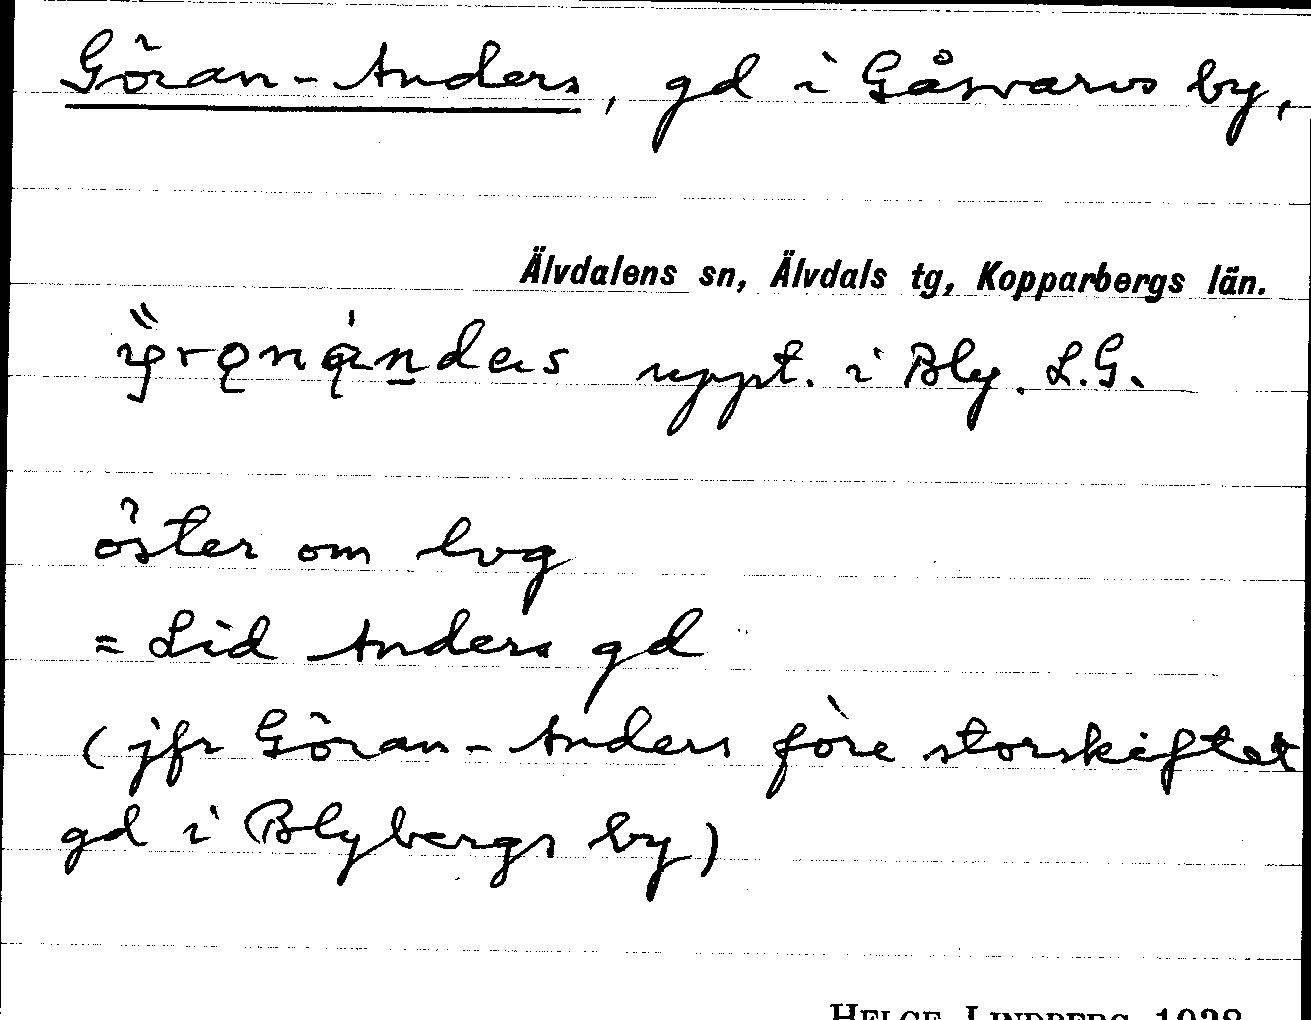 Göran-Anders, gd i Gåsvarvs by,
Älvdalens sn, Älvdals tg, Kopparbergs län.
uppt. i Bly. L.G.
öster om lvg
= Lid Anders gd
(jfr Göran-Anders före storskiftet
gd i Blybergs by)
HELGE LINDBERG 1938